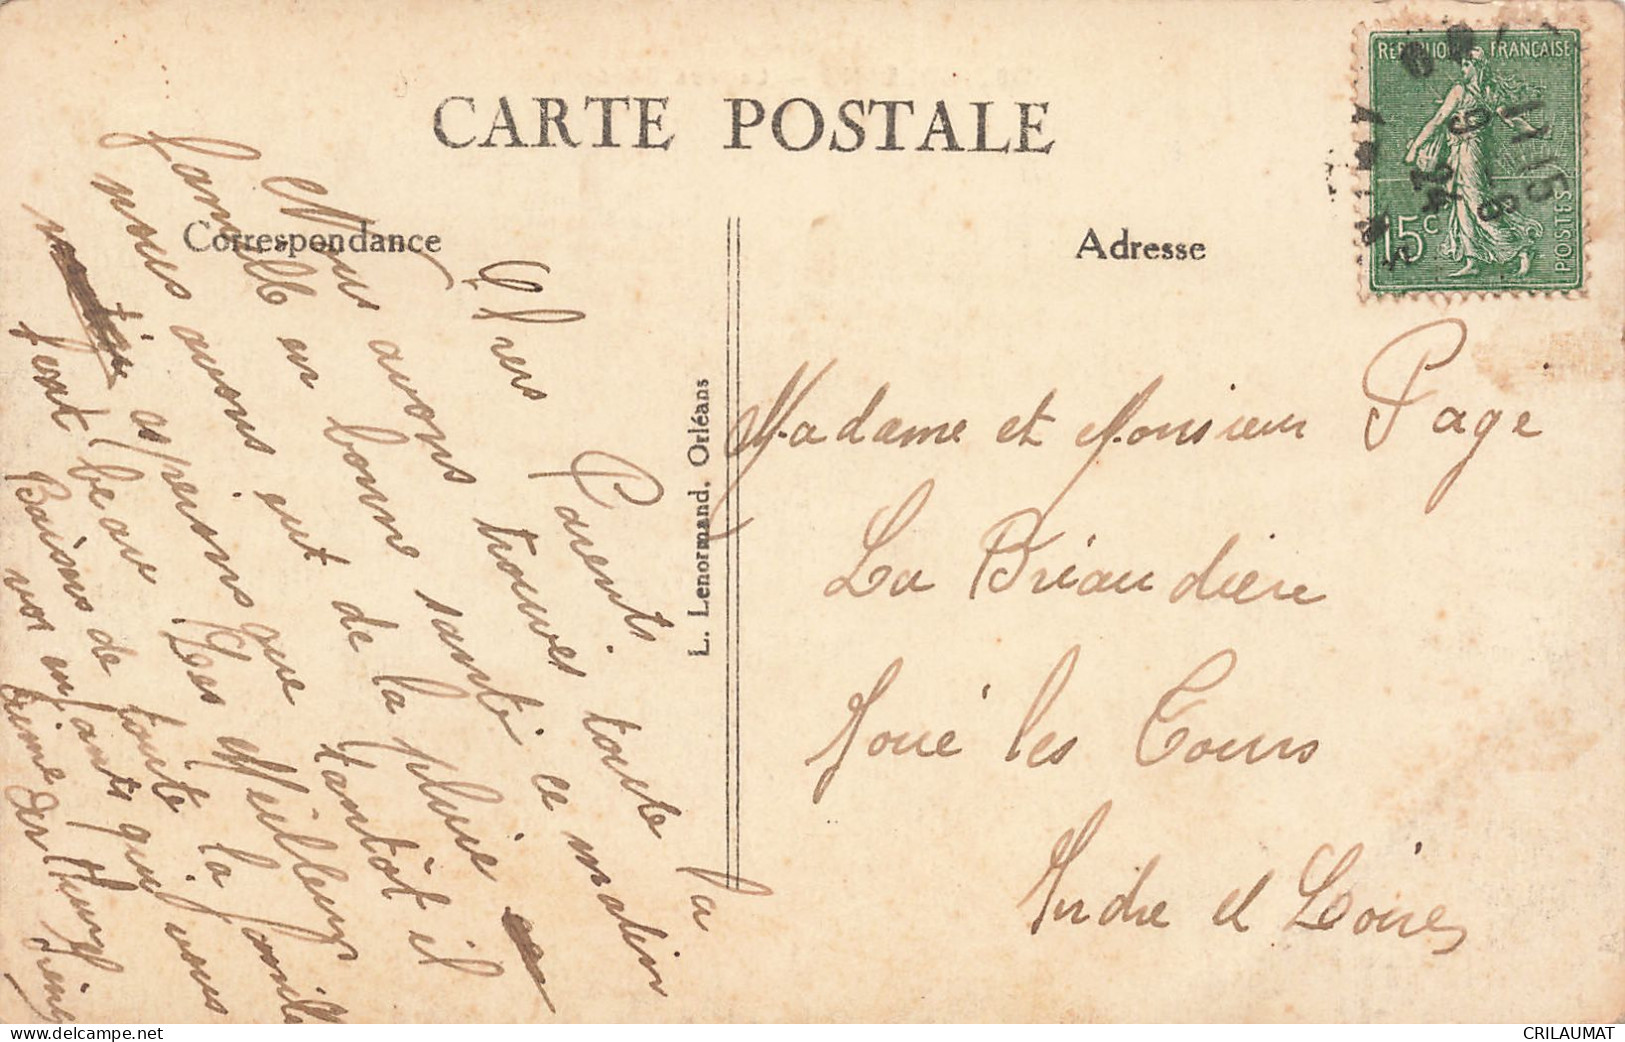 CARTE POSTALE
Correspondance
Adresse
REPUBLIQUE FRANÇAISE
15c
POSTES
Chers Parents.
Nous avons trouvés toute la
famille en bonne santé ce matin
nous avons eut de la pluie
matin tantôt il
fait beau
après que
Les Meilleurs
Baisers de toute la famille
vos enfants qui vous
aime
L. Lenormand, Orléans
Madame et Monsieur Page
La Briaudière
Joué les Tours
Indre et Loire
www.delcampe.net
CRILAUMAT